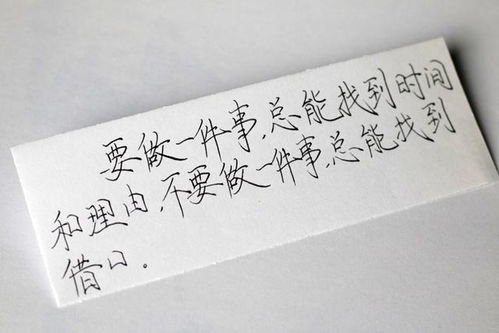 要做一件事,总能找到时间
和理由,不要做一件事,总能找到
借口。